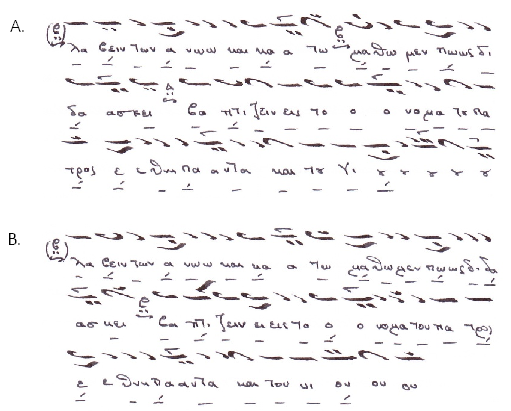 A.
λα βειν των α νωω και κα α τω μαθω μεν πωως δι
δα ασκει βα πτι ζειν εις το ο ο νομα τȣ πα
τρος ε ε θνη πα αντα και τȣ Υι ȣ ȣ ȣ ȣ ȣ
B.
λα βειν των α νωω και κα α τω μαθωμεν πωως δι δα
ασκει βα πτι ζειν ει εις το ο ο νοματου πα τρος
ε ε θνη πα αντα και του υι ου ου ου